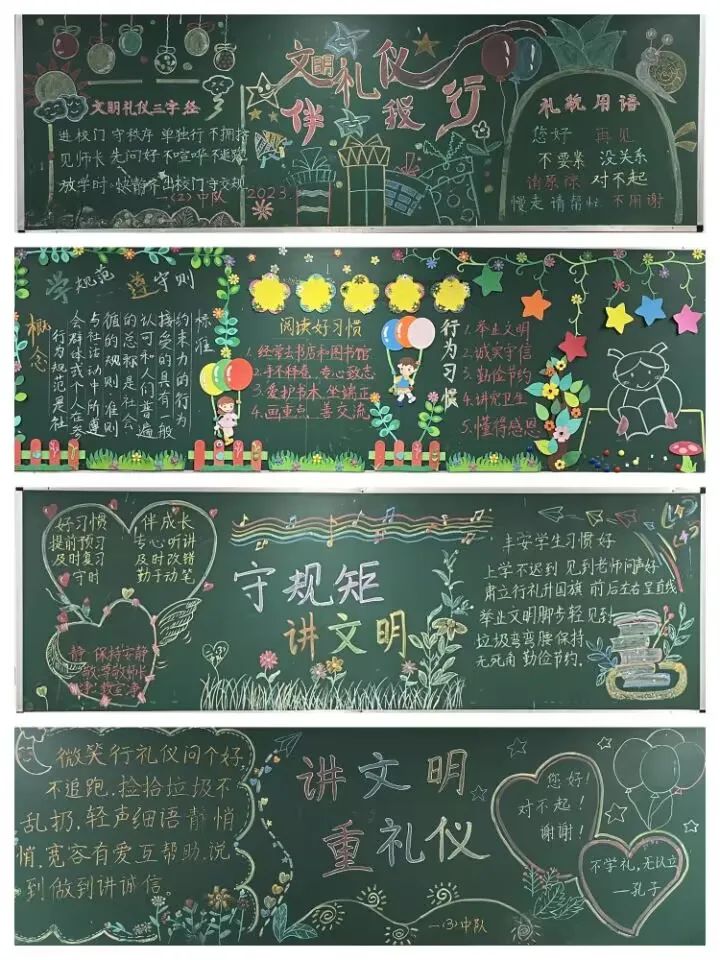 文明礼仪三字经
进校门 守秩序 单独行 不拥挤
见师长 先问好 不喧哗 不追跑
放学时 快静齐 出校门 守交规
一(2)中队 2023.
文明礼仪
伴我行
礼貌用语
您好 再见
不要紧 没关系
请原谅 对不起
慢走 请帮忙 不用谢
学规范 遵守则
概念
行为规范是社
会群体或个人在参
与社会活动中所遵
循的规则、准则
的总称是社会
认可和人们普遍
接受的具有一般
约束力的行为
标准
阅读好习惯
1.经常去书店和图书馆
2.手不释卷、专心致志
3.爱护书本、坐端正
4.画重点、善交流
行为习惯
1.举止文明
2.诚实守信
3.勤俭节约
4.讲究卫生
5.懂得感恩
好习惯 伴成长
提前预习 专心听讲
及时复习 及时改错
守时 勤于动笔
静 保持安静
敬 尊敬师长
净 教室净
守规矩
讲文明
丰安学生习惯好
上学不迟到 见到老师问声好
肃立行礼升国旗 前后左右呈直线
举止文明脚步轻 见到
垃圾弯弯腰 保持
无死角 勤俭节约.
微笑行礼仪问个好,
不追跑.捡拾垃圾不
乱扔.轻声细语静悄
悄.宽容有爱互帮助.说
到做到讲诚信。
讲文明
重礼仪
一(3)中队
您好!
对不起!
谢谢!
不学礼,无以立
—孔子